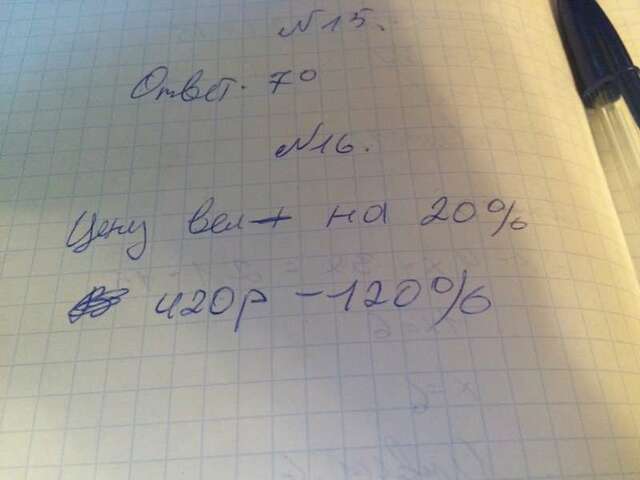 N15.
Ответ. 70
N16.
Цену вел+ на 20%
420р - 120%